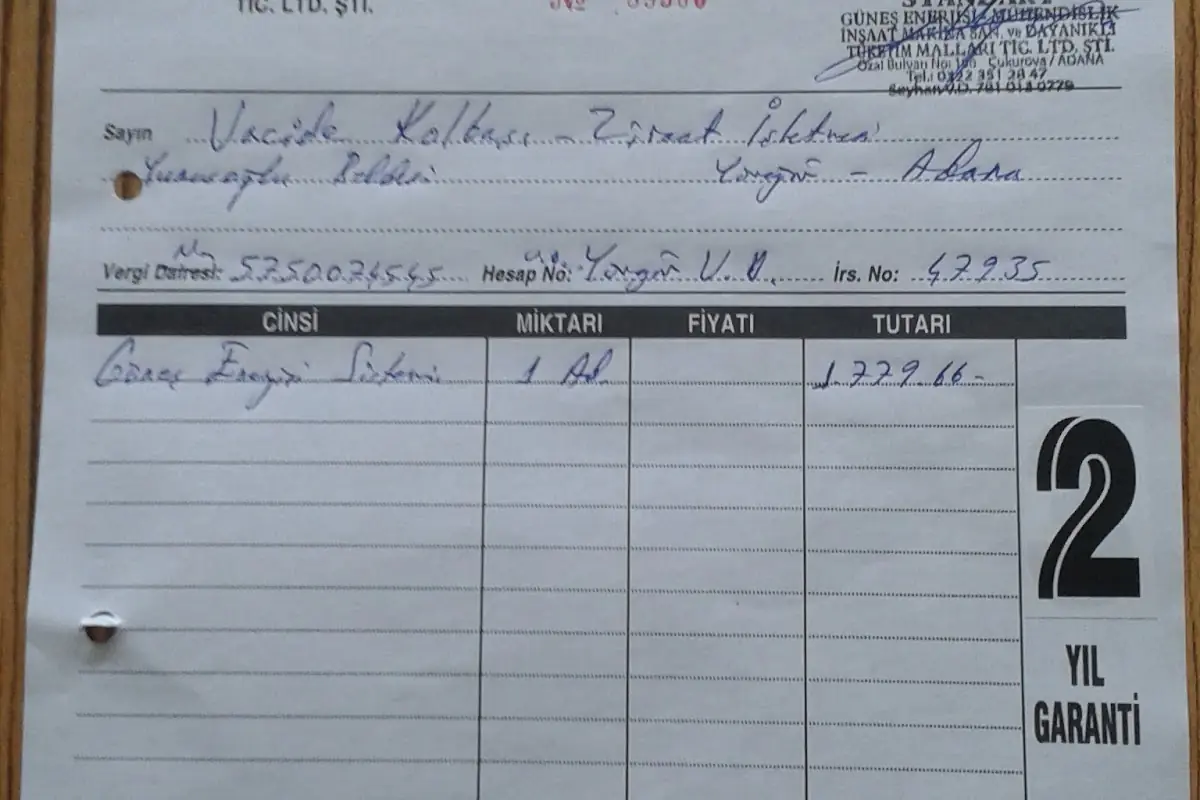 TİC. LTD. ŞTİ.
No
GÜNEŞ ENERJİSİ MÜHENDİSLİK
İNŞAAT MAKİNA SAN. ve DAYANIKLI
TÜKETİM MALLARI TİC. LTD. ŞTİ.
Özal Bulvarı No: Çukurova / ADANA
Tel.: 0322 351 28 47
Seyhan V.D. 781 018 0779
Sayın Vacide Kolbaşı - Ziraat İşletmesi
Beldesi Yüreğir - Adana
No
Vergi Dairesi: 5750074545 Hesap No: Yüreğir V.D. İrs. No: 47935
CİNSİ MİKTARI FİYATI TUTARI
Güneş Enerjisi Sistemi 1 Ad. 1.779.66-
2
YIL
GARANTİ